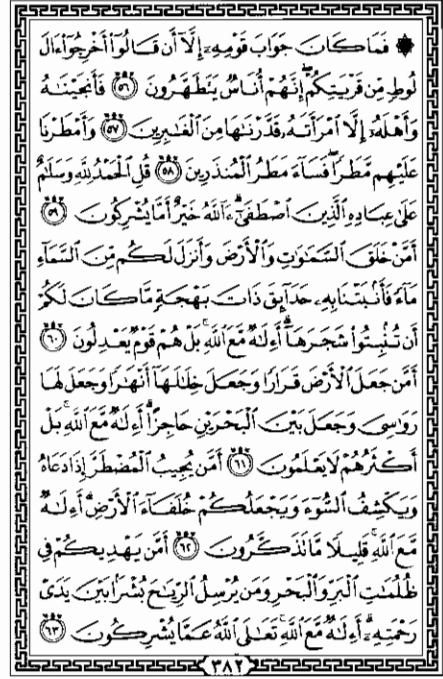 ۞ فَمَا كَانَ جَوَابَ قَوْمِهِۦٓ إِلَّآ أَن قَالُوٓا۟ أَخْرِجُوٓا۟ ءَالَ
لُوطٍ مِّن قَرْيَتِكُمْ ۖ إِنَّهُمْ أُنَاسٌ يَتَطَهَّرُونَ ٥٦ فَأَنجَيْنَٰهُ
وَأَهْلَهُۥٓ إِلَّا ٱمْرَأَتَهُۥ قَدَّرْنَٰهَا مِنَ ٱلْغَٰبِرِينَ ٥٧ وَأَمْطَرْنَا
عَلَيْهِم مَّطَرًا ۖ فَسَآءَ مَطَرُ ٱلْمُنذَرِينَ ٥٨ قُلِ ٱلْحَمْدُ لِلَّهِ وَسَلَٰمٌ
عَلَىٰ عِبَادِهِ ٱلَّذِينَ ٱصْطَفَىٰٓ ۗ ءَآللَّهُ خَيْرٌ أَمَّا يُشْرِكُونَ ٥٩
أَمَّنْ خَلَقَ ٱلسَّمَٰوَٰتِ وَٱلْأَرْضَ وَأَنزَلَ لَكُم مِّنَ ٱلسَّمَآءِ
مَآءً فَأَنۢبَتْنَا بِهِۦ حَدَآئِقَ ذَاتَ بَهْجَةٍ مَّا كَانَ لَكُمْ
أَن تُنۢبِتُوا۟ شَجَرَهَآ ۗ أَءِلَٰهٌ مَّعَ ٱللَّهِ ۚ بَلْ هُمْ قَوْمٌ يَعْدِلُونَ ٦٠
أَمَّن جَعَلَ ٱلْأَرْضَ قَرَارًا وَجَعَلَ خِلَٰلَهَآ أَنْهَٰرًا وَجَعَلَ لَهَا
رَوَٰسِىَ وَجَعَلَ بَيْنَ ٱلْبَحْرَيْنِ حَاجِزًا ۗ أَءِلَٰهٌ مَّعَ ٱللَّهِ ۚ بَلْ
أَكْثَرُهُمْ لَا يَعْلَمُونَ ٦١ أَمَّن يُجِيبُ ٱلْمُضْطَرَّ إِذَا دَعَاهُ
وَيَكْشِفُ ٱلسُّوٓءَ وَيَجْعَلُكُمْ خُلَفَآءَ ٱلْأَرْضِ ۗ أَءِلَٰهٌ
مَّعَ ٱللَّهِ ۚ قَلِيلًا مَّا تَذَكَّرُونَ ٦٢ أَمَّن يَهْدِيكُمْ فِى
ظُلُمَٰتِ ٱلْبَرِّ وَٱلْبَحْرِ وَمَن يُرْسِلُ ٱلرِّيَٰحَ بُشْرًۢا بَيْنَ يَدَىْ
رَحْمَتِهِۦٓ ۗ أَءِلَٰهٌ مَّعَ ٱللَّهِ ۚ تَعَٰلَى ٱللَّهُ عَمَّا يُشْرِكُونَ ٦٣
٣٨٢